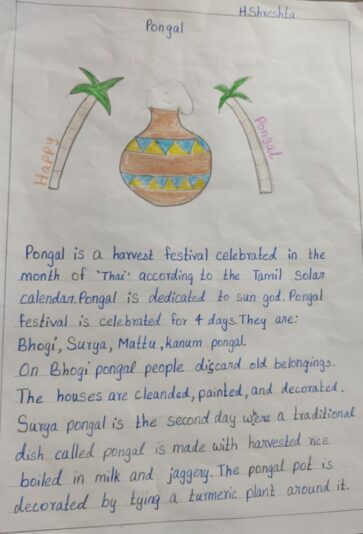 H.Shreshta
Pongal
Happy
Pongal
Pongal is a harvest festival celebrated in the
month of 'Thai' according to the Tamil solar
calendar. Pongal is dedicated to sun god. Pongal
festival is celebrated for 4 days. They are:
Bhogi, Surya, Mattu, kanum pongal.
On Bhogi pongal people discard old belongings.
The houses are cleanded, painted, and decorated.
Surya pongal is the second day were a traditional
dish called pongal is made with harvested rice
boiled in milk and jaggery. The pongal pot is
decorated by tying a turmeric plant around it.